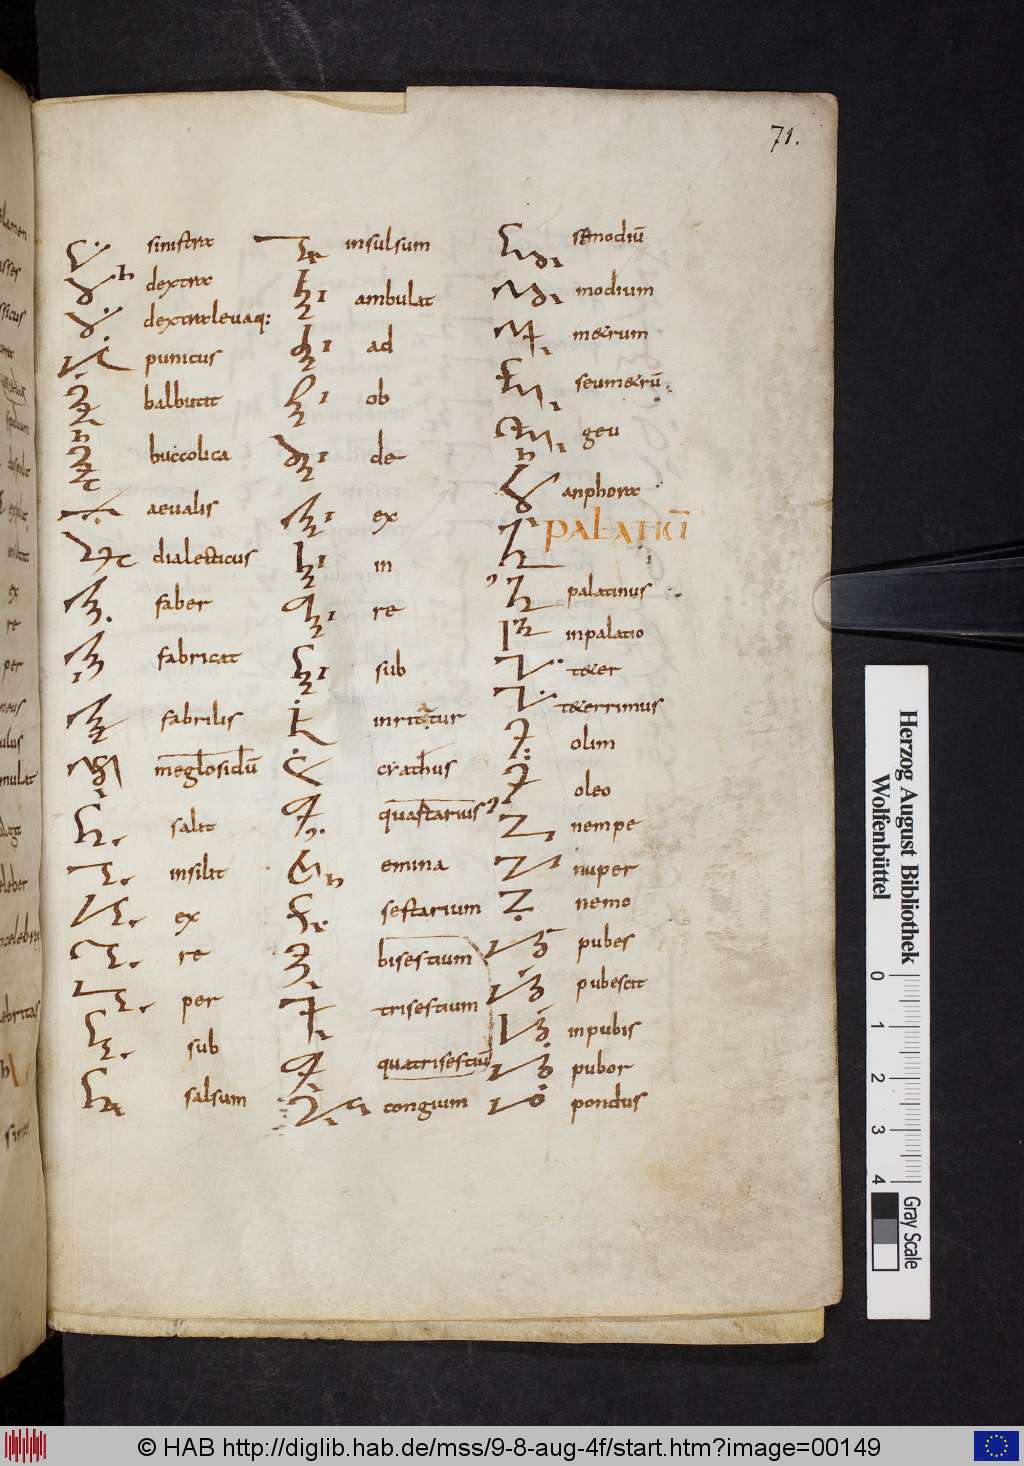 71.
sinistra
dextra
dextralevaq:
punicus
balbutit
buccolica
aevalis
dialecticus
faber
fabricat
fabrilis
salit
insilit
ex
re
per
sub
salsum
insulsum
ambulat
ad
ob
de
ex
in
re
sub
inritatur
crathus
quastarius
emina
sestarium
bisestium
trisestium
quatrisestiū
congium
semodiū
modium
metrum
seumetrū
geu
anphora
PALATIŪ
palatinus
inpalatio
teter
teterrimus
olim
oleo
nempe
nuper
nemo
pubes
pubescit
inpubis
pubor
pondus
Herzog August Bibliothek
Wolfenbüttel
0 1 2 3 4
Gray Scale
© HAB http://diglib.hab.de/mss/9-8-aug-4f/start.htm?image=00149